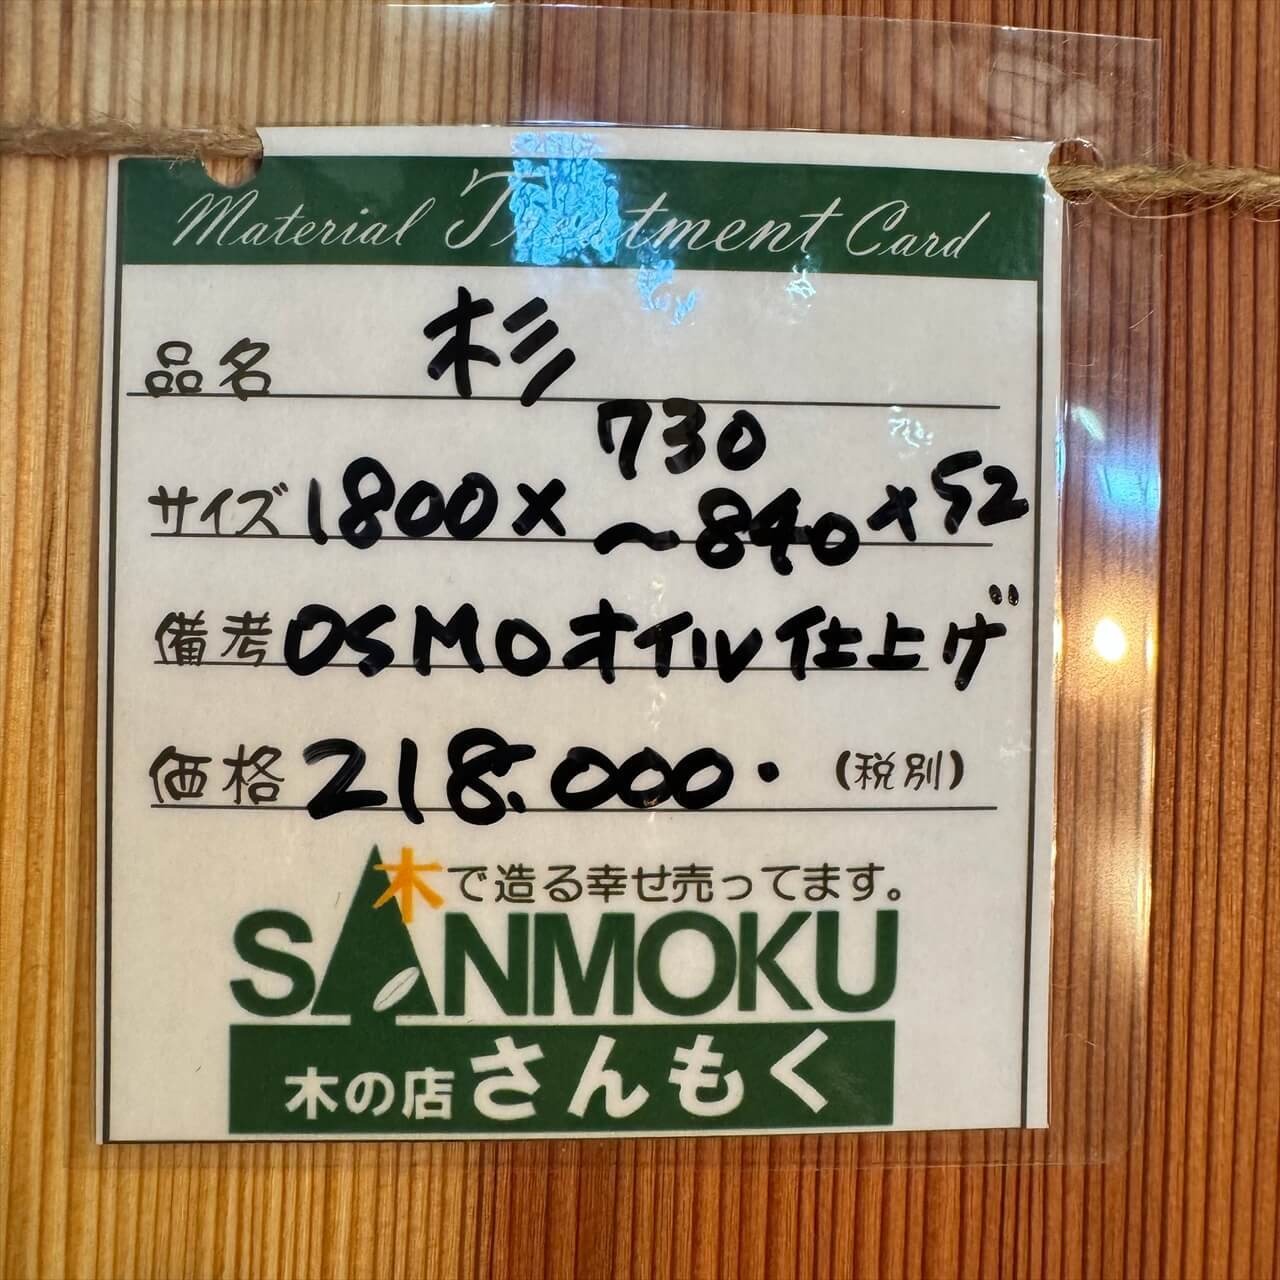 Material Treatment Card
品名 杉
サイズ 1800×730～840×52
備考 OSMOオイル仕上げ
価格 218.000. (税別)
木で造る幸せ売ってます。
SANMOKU
木の店 さんもく